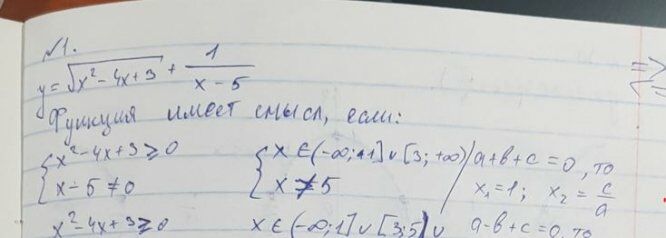 №1.
y = √(x² - 4x + 3) + 1/(x - 5)
Функция имеет смысл, если:
{ x² - 4x + 3 ≥ 0 { x ∈ (-∞; 1] ∪ [3; +∞) / a + b + c = 0, то
{ x - 5 ≠ 0 { x ≠ 5 / x₁ = 1; x₂ = c/a
x² - 4x + 3 ≥ 0 x ∈ (-∞; 1] ∪ [3; 5) ∪ a - b + c = 0, то
⇒
⇐